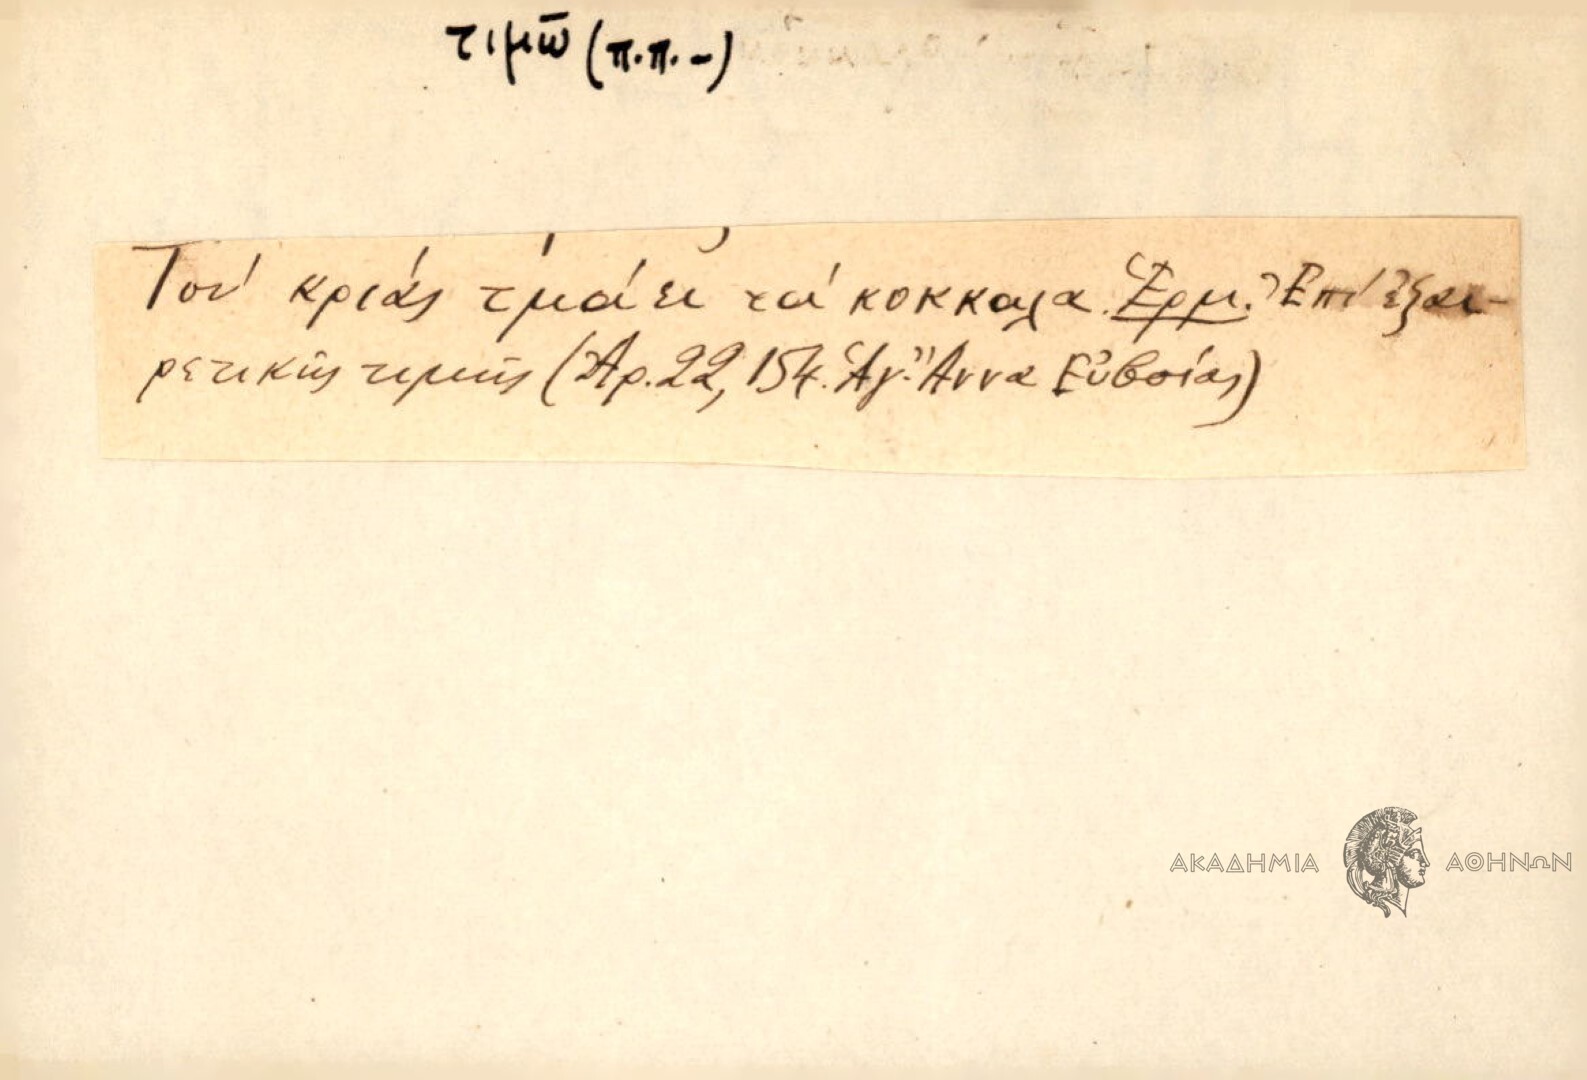 τιμῶ (π.π. -)
Τον' κριάς τ'μάει τα' κοκκαλα. Ἑρμ. Ἐπὶ ἐξαι-
ρετικῆς τιμῆς (Ἀρ. 22, 154. Ἁγ. Ἄννα Εὐβοίας)
ΑΚΑΔΗΜΙΑ ΑΘΗΝΩΝ